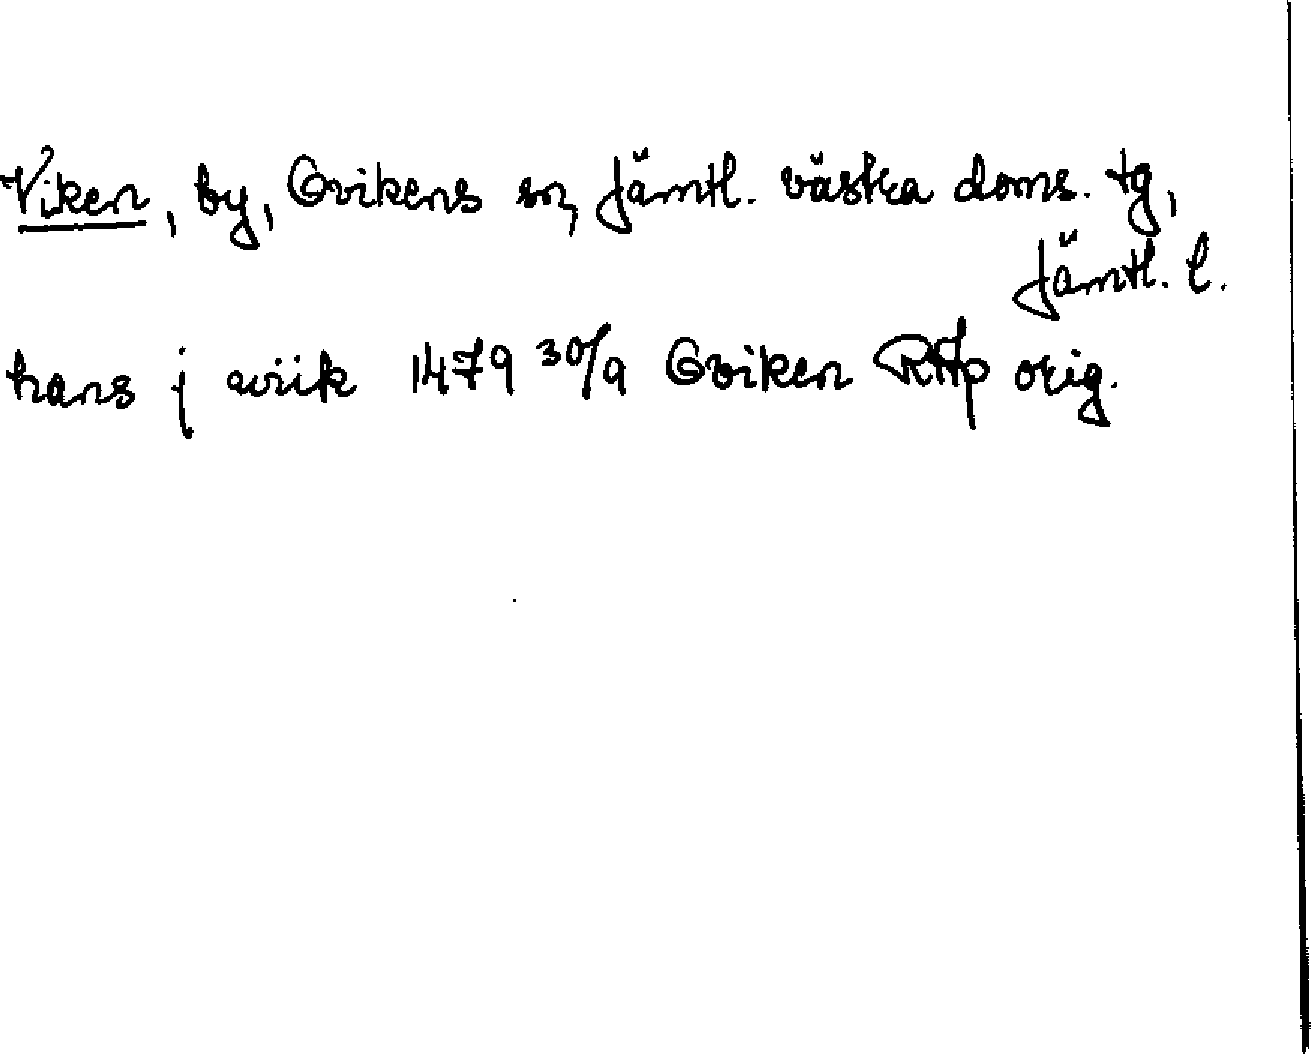 Viken, by, Ovikens sn, Jämtl. västra doms. tg,
Jämtl. l.
hans j wiik 1479 30/9 Oviken RAp orig.